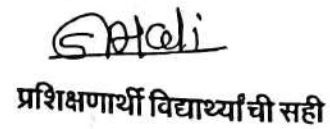 प्रशिक्षणार्थी विद्यार्थ्यांची सही